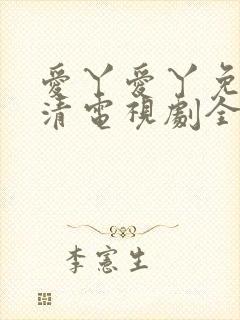 愛丫愛丫免
清電視劇全
李憲生